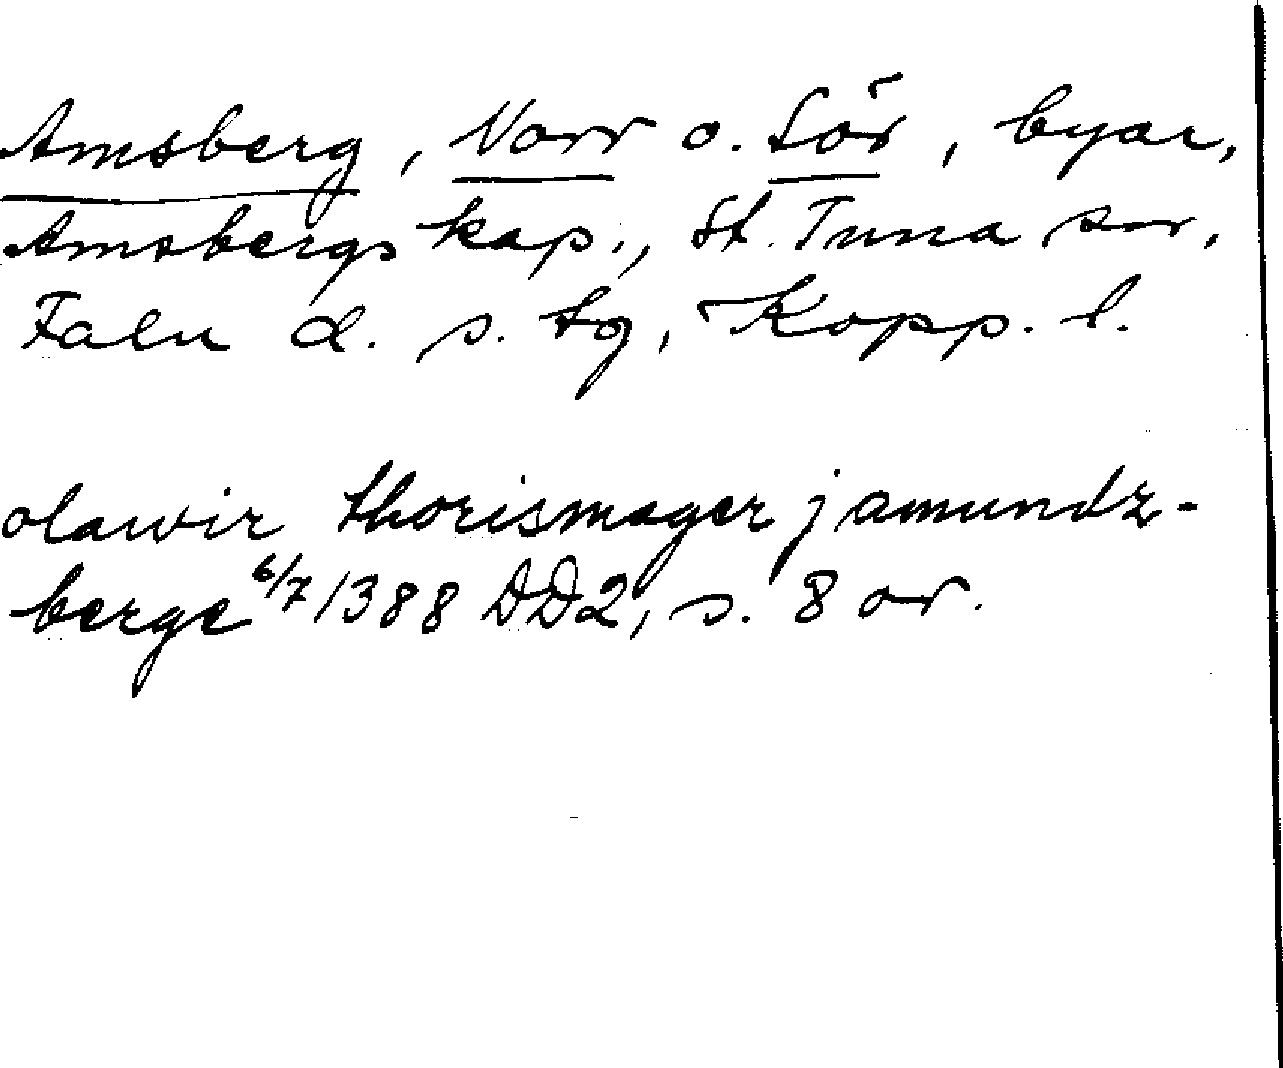 Amsberg, Norr o. Sör, byar,
Amsbergs kap., St. Tuna sn.,
Falu d. s. tg, Kopp. l.
olawir thorismager j amundz-
berge 6/7 1388 DD2, s. 8 or.